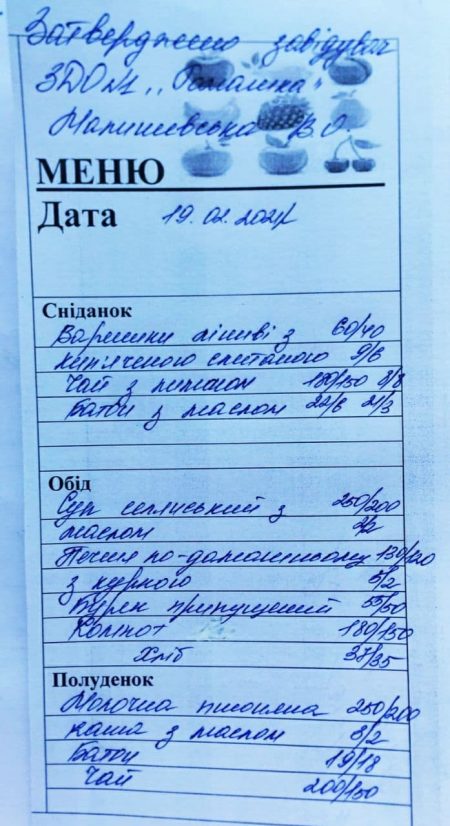 Затверджено завідувач
ЗДО №1 „Ромашка"
Малишевська В О.
МЕНЮ
Дата 19.02.2024
Сніданок
Вареники ліниві з 60/40
кип'яченою сметаною 9/6
Чай з лимоном 180/150 8/8
Батон з маслом 22/6 21/3
Обід
Суп селянський з 250/200
маслом 2/2
Печеня по-домашньому 130/120
з куркою 5/2
Буряк припущений 55/50
Компот 180/150
Хліб 37/35
Полуденок
Молочна пшоняна 250/200
каша з маслом 8/2
Батон 19/18
Чай 200/150